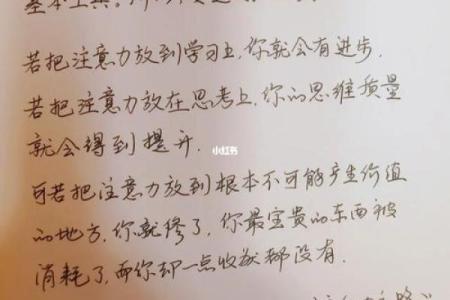 基本工具。
若把注意力放到学习上,你就会有进步.
若把注意力放在思考上,你的思维质量
就会得到提升.
小红书
可若把注意力放到根本不可能产生价值
的地方,你就惨了,你最宝贵的东西被
消耗了,而你却一点收获都没有.